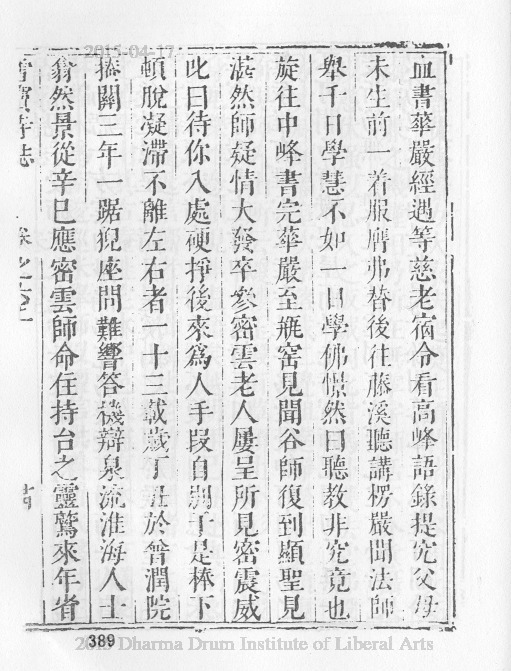 血書華嚴經遇等慈老宿令看高峰語錄提究父母
未生前一着服膺弗替後往藤溪聽講楞嚴聞法師
舉千日學慧不如一日學佛憬然曰聽教非究竟也
旋往中峰書完華嚴至瓶窑見聞谷師復到顯聖見
湛然師疑情大發卒參密雲老人屢呈所見密震威
叱曰待你入處硬掙後來爲人手段自別于是棒下
頓脫凝滯不離左右者一十三載歲丁丑於普潤院
掩關三年一踞猊座問難響答機辯泉流淮海人士
翕然景從辛巳應密雲師命住持台之靈鷲來年者
雪竇寺志 卷之
389
2015-04-17
Dharma Drum Institute of Liberal Arts